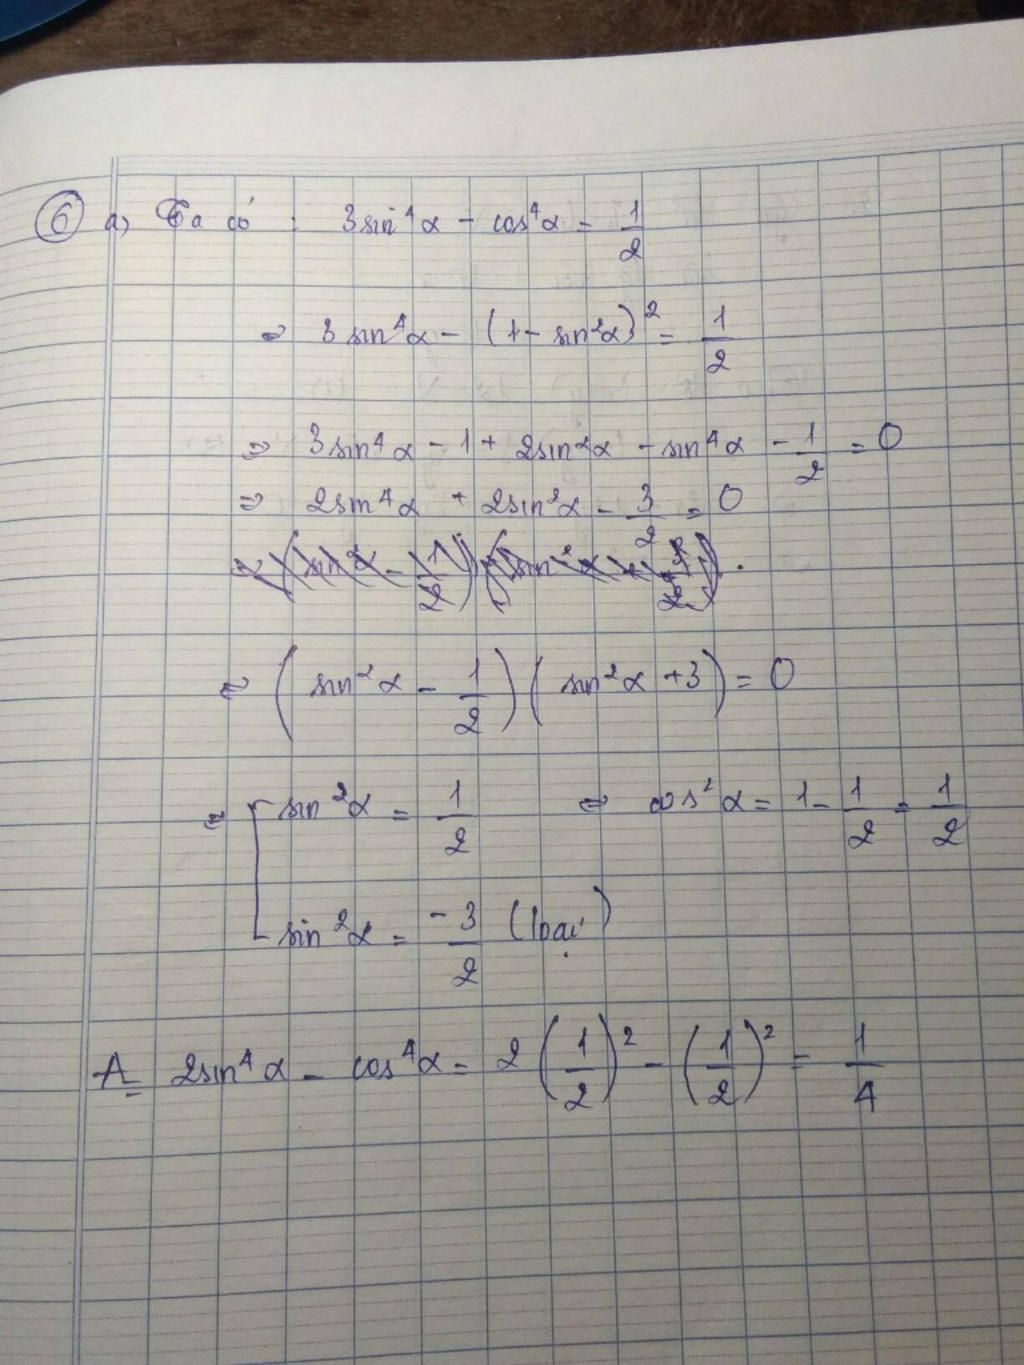 ⑥ a) Ta có : 3sin⁴α - cos⁴α = 1/2
⇒ 3sin⁴α - (1 - sin²α)² = 1/2
⇒ 3sin⁴α - 1 + 2sin²α - sin⁴α - 1/2 = 0
⇒ 2sin⁴α + 2sin²α - 3/2 = 0
⇔ (sin²α - 1/2)(sin²α + 3) = 0
⇔ [ sin²α = 1/2 ⇔ cos²α = 1 - 1/2 = 1/2
sin²α = -3/2 (loại)
A = 2sin⁴α - cos⁴α = 2(1/2)² - (1/2)² = 1/4